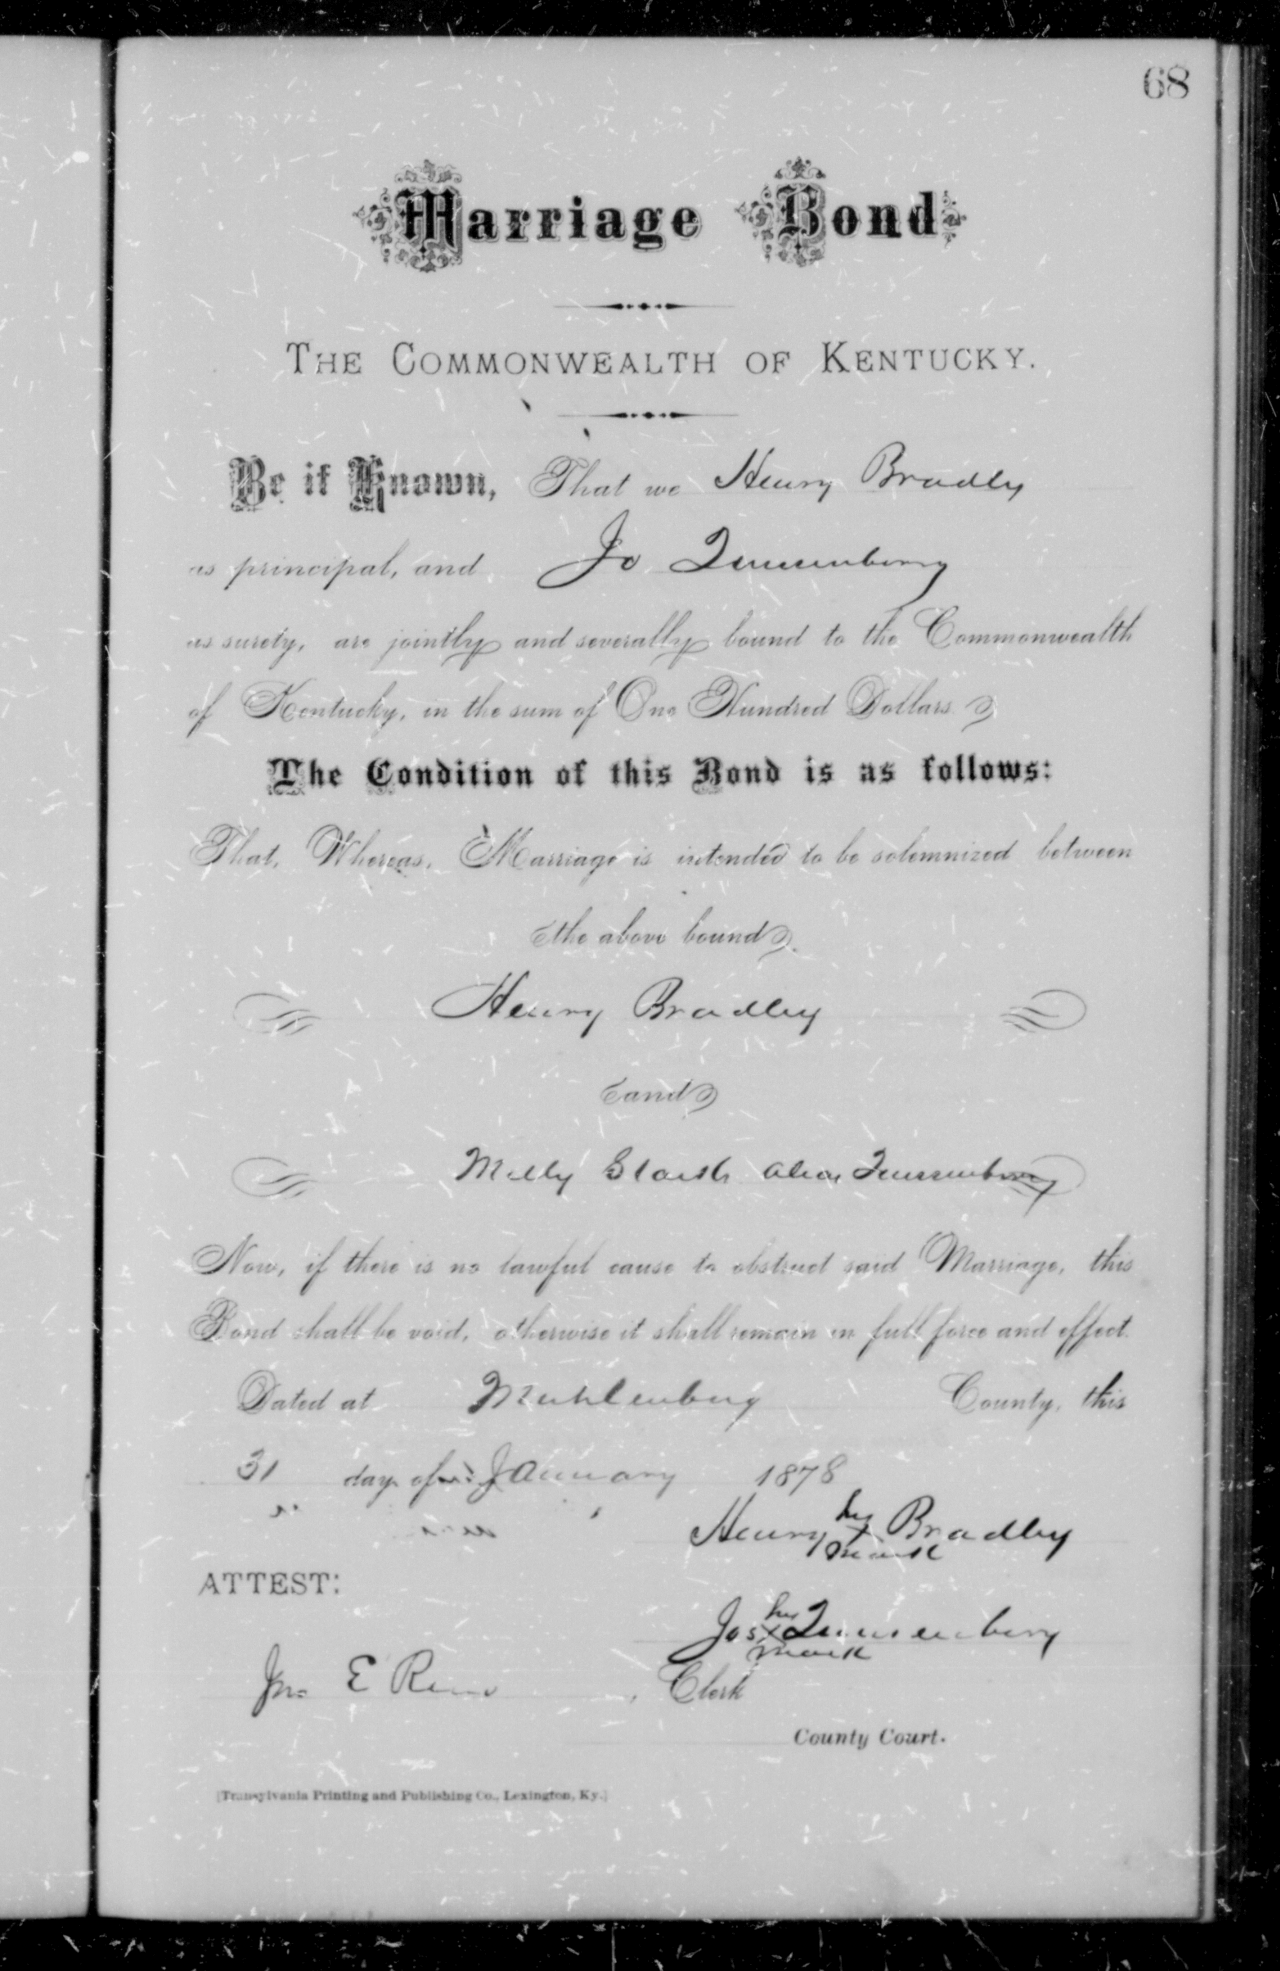 68
Marriage Bond
THE COMMONWEALTH OF KENTUCKY.
Be it Known, That we Henry Bradley
as principal, and Jo
as surety, are jointly and severally bound to the Commonwealth
of Kentucky, in the sum of One Hundred Dollars
The Condition of this Bond is as follows:
That, Whereas, Marriage is intended to be solemnized between
the above bound
Henry Bradley
and
Milly alias
Now, if there is no lawful cause to obstruct said Marriage, this
Bond shall be void, otherwise it shall remain in full force and effect.
Dated at Muhlenberg County, this
31 day of January 1878
Henry his x mark Bradley
ATTEST:
Jos his x mark
Jno E Reno, Clerk
County Court.
[Transylvania Printing and Publishing Co., Lexington, Ky.]